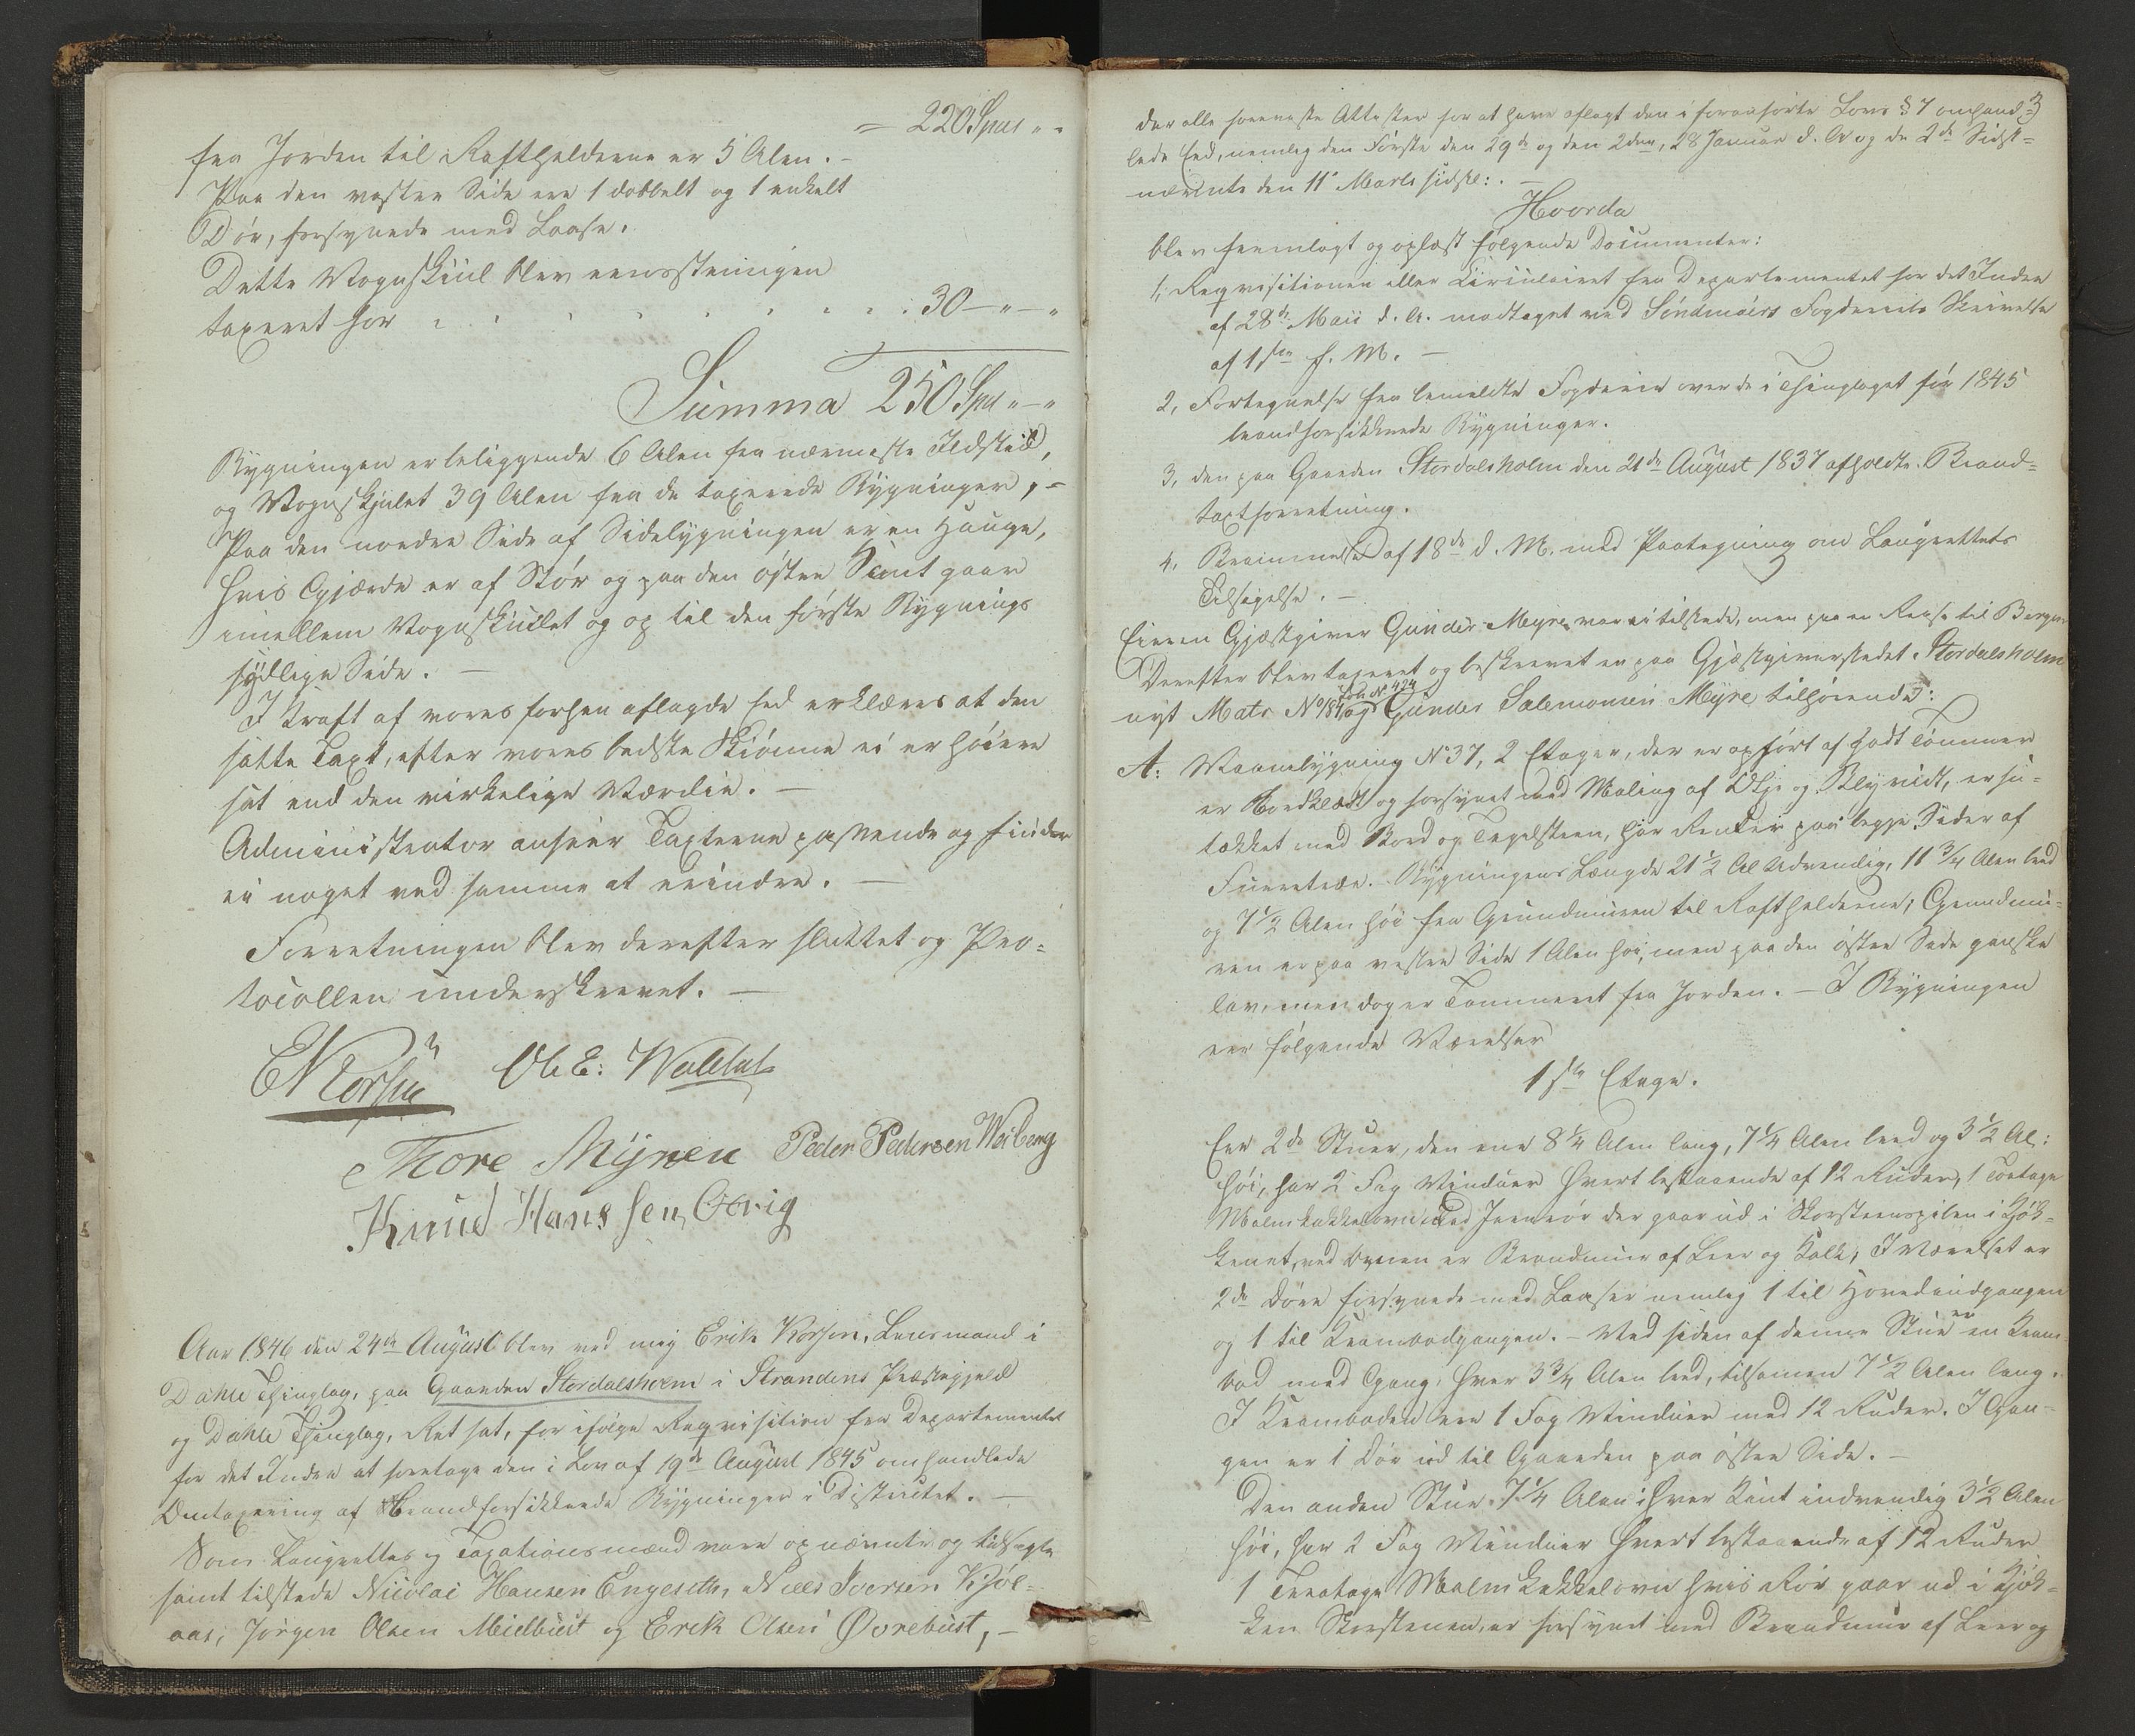 = 220 Spd " "
fra Jorden til Raftholderne er 5 Alen. –
Paa den vestre Side ere 1 dobbelt og 1 enkelt
Dör, forsynede med Laase.
Dette Vognskiul blev eensstemmigen
taxeret for . . . . . . . . 30 – " – "
Summa 250 Spd " – "
Bygningen er beliggende 6 Alen fra nærmeste Ildsted,
og Vognskjulet 39 Alen fra de taxerede Bygninger, –
Paa den nordre Side af Sidebygningen er en Hauge,
hvis Gjærde er af Stör og paa den östre Kant gaar
imellem Vognskiulet og op til den förste Bygnings
sydlige Side. –
I Kraft af vores forhen aflagde Eed erklæres at den
satte Taxt, efter vores bedste Skiönne ei er höiere
sat end den virkelige Værdie. –
Administrator anseer Taxterne passende og finder
ei noget ved samme at erindre. –
Forretningen blev derefter sluttet og Pro=
tocollen underskrevet. –
E Korsen Ole E: Waldal
Thore Myren Peder Pedersen Weiberg
Knud Hanssen Ovrig
Aar 1846 den 24de August blev ved mig Erik Korsen, Lensmand i
Dahle Thinglag, paa Gaarden Stordalsholm i Strandens Præstegjeld
og Dahle Thinglag, Ret sat, for ifölge Reqvisition fra Departementet
for det Indre at foretage den i Lov af 19de August 1845 omhandlede
Omtaxering af Brandforsikkrede Bygninger i Districtet. –
Som Laugrettes og Taxationsmænd vare opnævnte og tilsagte
samt tilstede Nicolai Hansen Engeseth, Niels Iversen Kjöl=
aas, Jörgen Olsen Mielbust og Erik Olsen Øvrebust, –
3
der alle foreviste Attester for at have aflagt den i foranförte Lovs § 7 omhand=
lede Eed, nemlig den Förste den 29de og den 2den, 28 Januar d. A og de 2de Sidst=
nævnte den 11 Marts sidstl: . –
Hvorda
blev fremlagt og oplæst fölgende Documenter:
1, Reqvisitionen eller Circulairet fra Departementet for det Indre
af 28de Maii d. A. modtaget ved Söndmörs Fogderies Skrivelse
af 1ste f. M. –
2, Fortegnelse fra bemeldte Fogderie over de i Thinglaget för 1845
brandforsikkrede Bygninger.
3, den paa Gaarden Stordalsholm den 21de August 1837 afholdte Brand=
taxtforretning.
4, Berammelse af 18de d. M. med Paategning om Laugrettets
Tilsigelse. –
Eieren Gjæstgiver Gunder Myre var ei tilstede, men paa en Reise til Bergen
Derefter blev taxeret og beskrevet en paa Gjæstgiverstedet Stordalsholm
Löb No 424
nyt Matr No 184 og Gunder Salemonsen Myre tilhörende:
A: Vaanebygning No 37, 2 Etager, der er opfört af godt Tömmer
er Bordklædt og forsynet med Maling af Olje og Blyvidt, er
tækket med Bord og Tegelsteen, har Render paa begge Sider af
Furretræe. – Bygningens Længde 21½ Al Udvendig, 11¾ Alen bred
og 7½ Alen höi fra Grundmuren til Raftholderne; Grundmu=
ren er paa vestre Side 1 Alen höi, men paa den östre Side ganske
lav, men dog er Tömmeret fra Jorden. – I Bygningen
ere fölgende Værelser
1ste Etage.
Ere 2de Stuer, den ene 8¼ Alen lang, 7¼ Alen bred og 3½ Al:
höi, har 2 Fag Vinduer hvert bestaaende af 12 Ruder, 1 Toetage
Malmkakkelovn med Jernrör der gaar ud i Skorsteenspiben i Kjök=
kenet, ved Ovnen er Brandmuur af Leer og Kalk; I Værelset er
2de Döre forsynede med Laaser nemlig 1 til Hovedindgangen
og 1 til Krambodgangen. – Ved siden af denne Stue er en Kram
bod med Gang, hver 3¾ Alen bred, tilsamen 7½ Alen lang.
I Kramboden ere 1 Fag Vinduer med 12 Ruder. I Gan=
gen er 1 Dör ud til Gaarden paa östre Side. –
Den anden Stue 7¼ Alen i hver Kant indvendig 3½ Alen
höi, har 2 Fag Vinduer hvert bestaaende af 12 Ruder
1 Treetage Malmkakkelovn hvis Rör gaar ud i Kjök=
ken Skorstenen, er forsynet med Brandmuur af Leer og